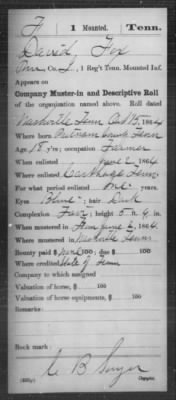 F 1 Mounted. Tenn.
David Fox
Co. 1 Reg't Tenn. Mounted Inf.
Appears on
Company Muster-in and Descriptive Roll
of the organization named above. Roll dated
Nashville Tenn Oct 15, 1864
Where born Putnam Tenn
Age 18 y'rs; occupation Farmer
When enlisted June 2, 1864
Where enlisted Carthage Tenn
For what period enlisted one years.
Eyes Blue; hair Dark
Complexion Fair; height 5 ft. 9 in.
When mustered in 1864
Where mustered in Nashville Tenn
Bounty paid $ 100; due $ 100
Where credited State of Tenn
Company to which assigned
Valuation of horse, $ 100
Valuation of horse equipments, $ 100
Remarks:
Book mark:
C B
Copyist.